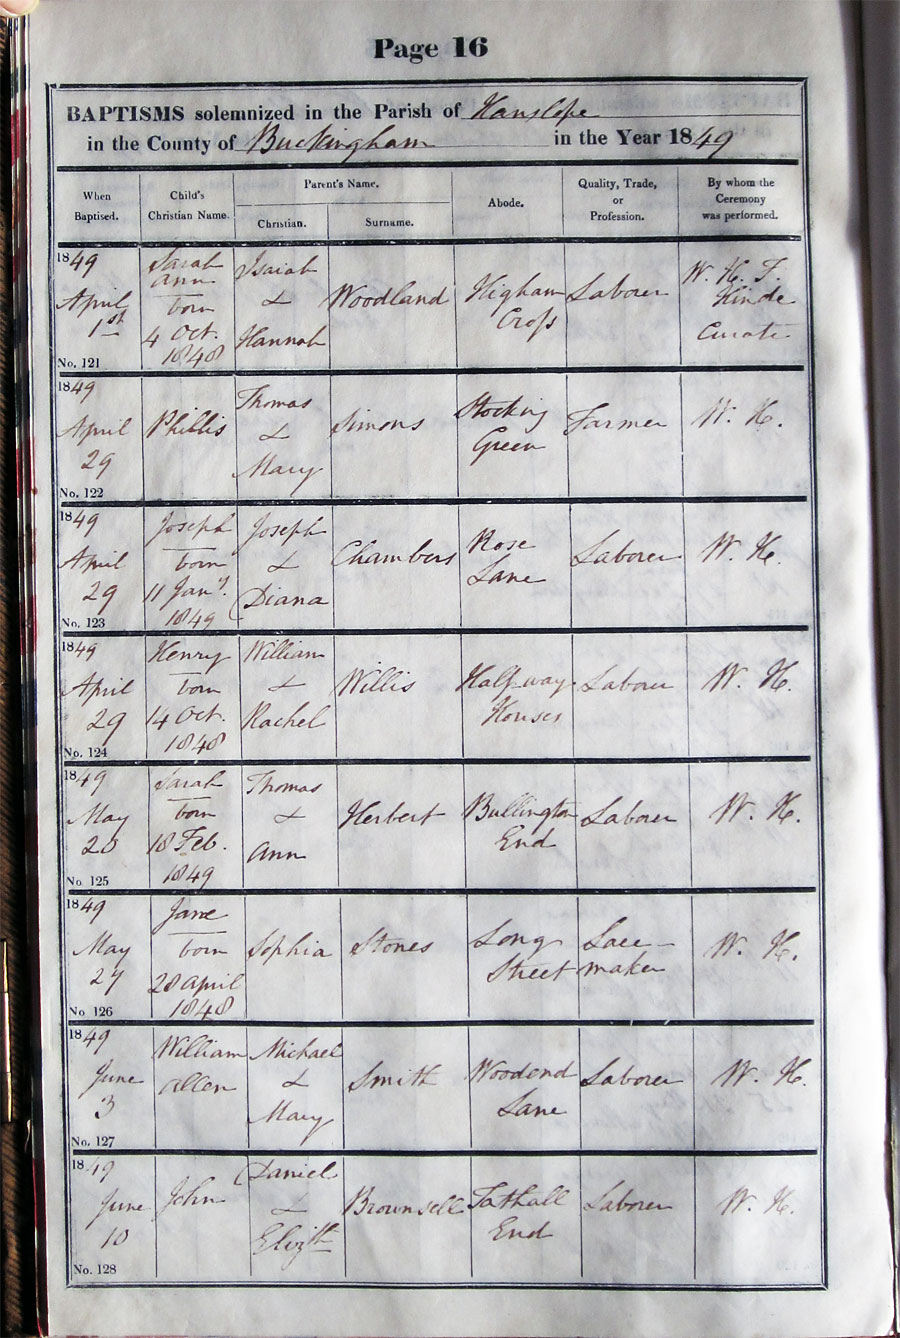 Page 16
BAPTISMS solemnized in the Parish of Hanslope
in the County of Buckingham in the Year 1849
When Baptised.
Child's Christian Name.
Parent's Name.
Christian.
Surname.
Abode.
Quality, Trade, or Profession.
By whom the Ceremony was performed.
1849
April
1st
No. 121
Sarah
Ann
born
4 Oct.
1848
Isaiah
&
Hannah
Woodland
Higham
Cross
Laborer
W. H. F.
Hinde
Curate
1849
April
29
No. 122
Phillis
Thomas
&
Mary
Simons
Stocking
Green
Farmer
W. H.
1849
April
29
No. 123
Joseph
born
11 Jany.
1849
Joseph
&
Diana
Chambers
Rose
Lane
Laborer
W. H.
1849
April
29
No. 124
Henry
born
14 Oct.
1848
William
&
Rachel
Willis
Halfway
Houses
Laborer
W. H.
1849
May
20
No 125
Sarah
born
18 Feb.
1849
Thomas
&
Ann
Herbert
Bullington
End
Laborer
W. H.
1849
May
27
No 126
Jane
born
28 April
1848
Sophia
Stones
Long
Street
Lace-
maker
W. H.
1849
June
3
No. 127
William
Allen
Michael
&
Mary
Smith
Woodend
Lane
Laborer
W. H.
1849
June
10
No. 128
John
Daniel
&
Elizth
Brownsell
Tathall
End
Laborer
W. H.